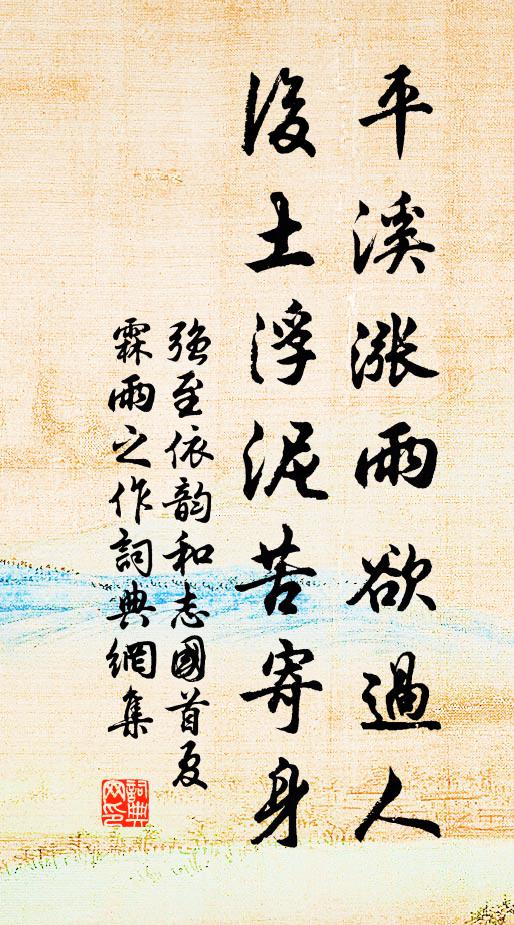 平溪漲雨欲過人
後土浮泥苦寄身
强至依韵和志國首夏
霖雨之作詞典網集
詞典
网印